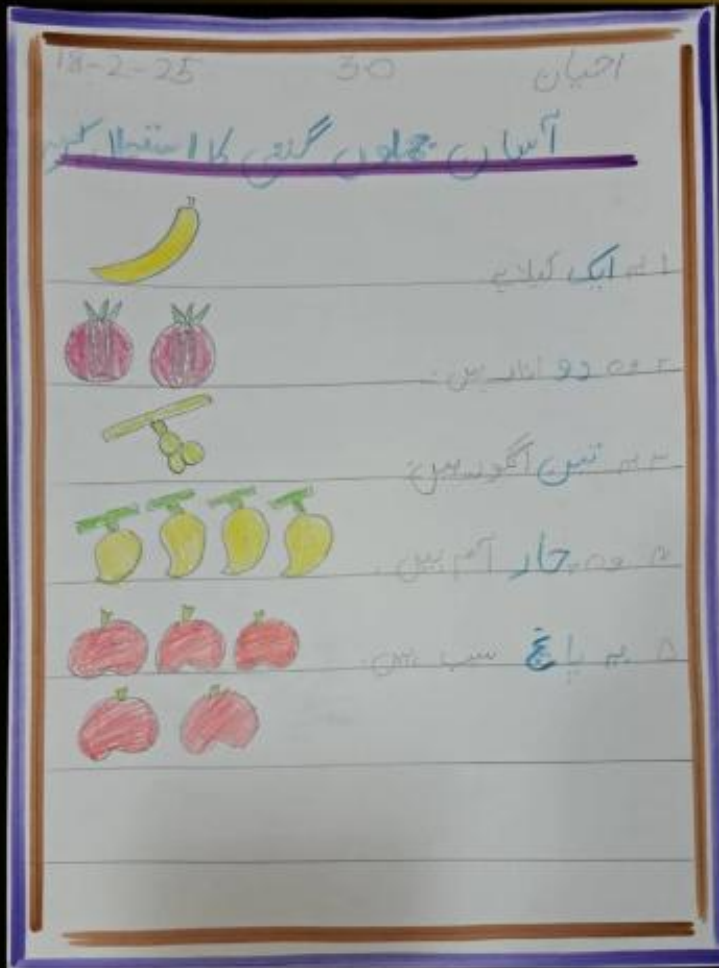 احیان 30 18-2-25
آسان جملوں گنتی کا استعمال کریں
۱ یہ ایک کیلا ہے
۲ وہ دو انار ہیں.
۳ یہ تین انگور ہیں.
۴ وہ چار آم ہیں.
۵ یہ پانچ سیب ہیں.